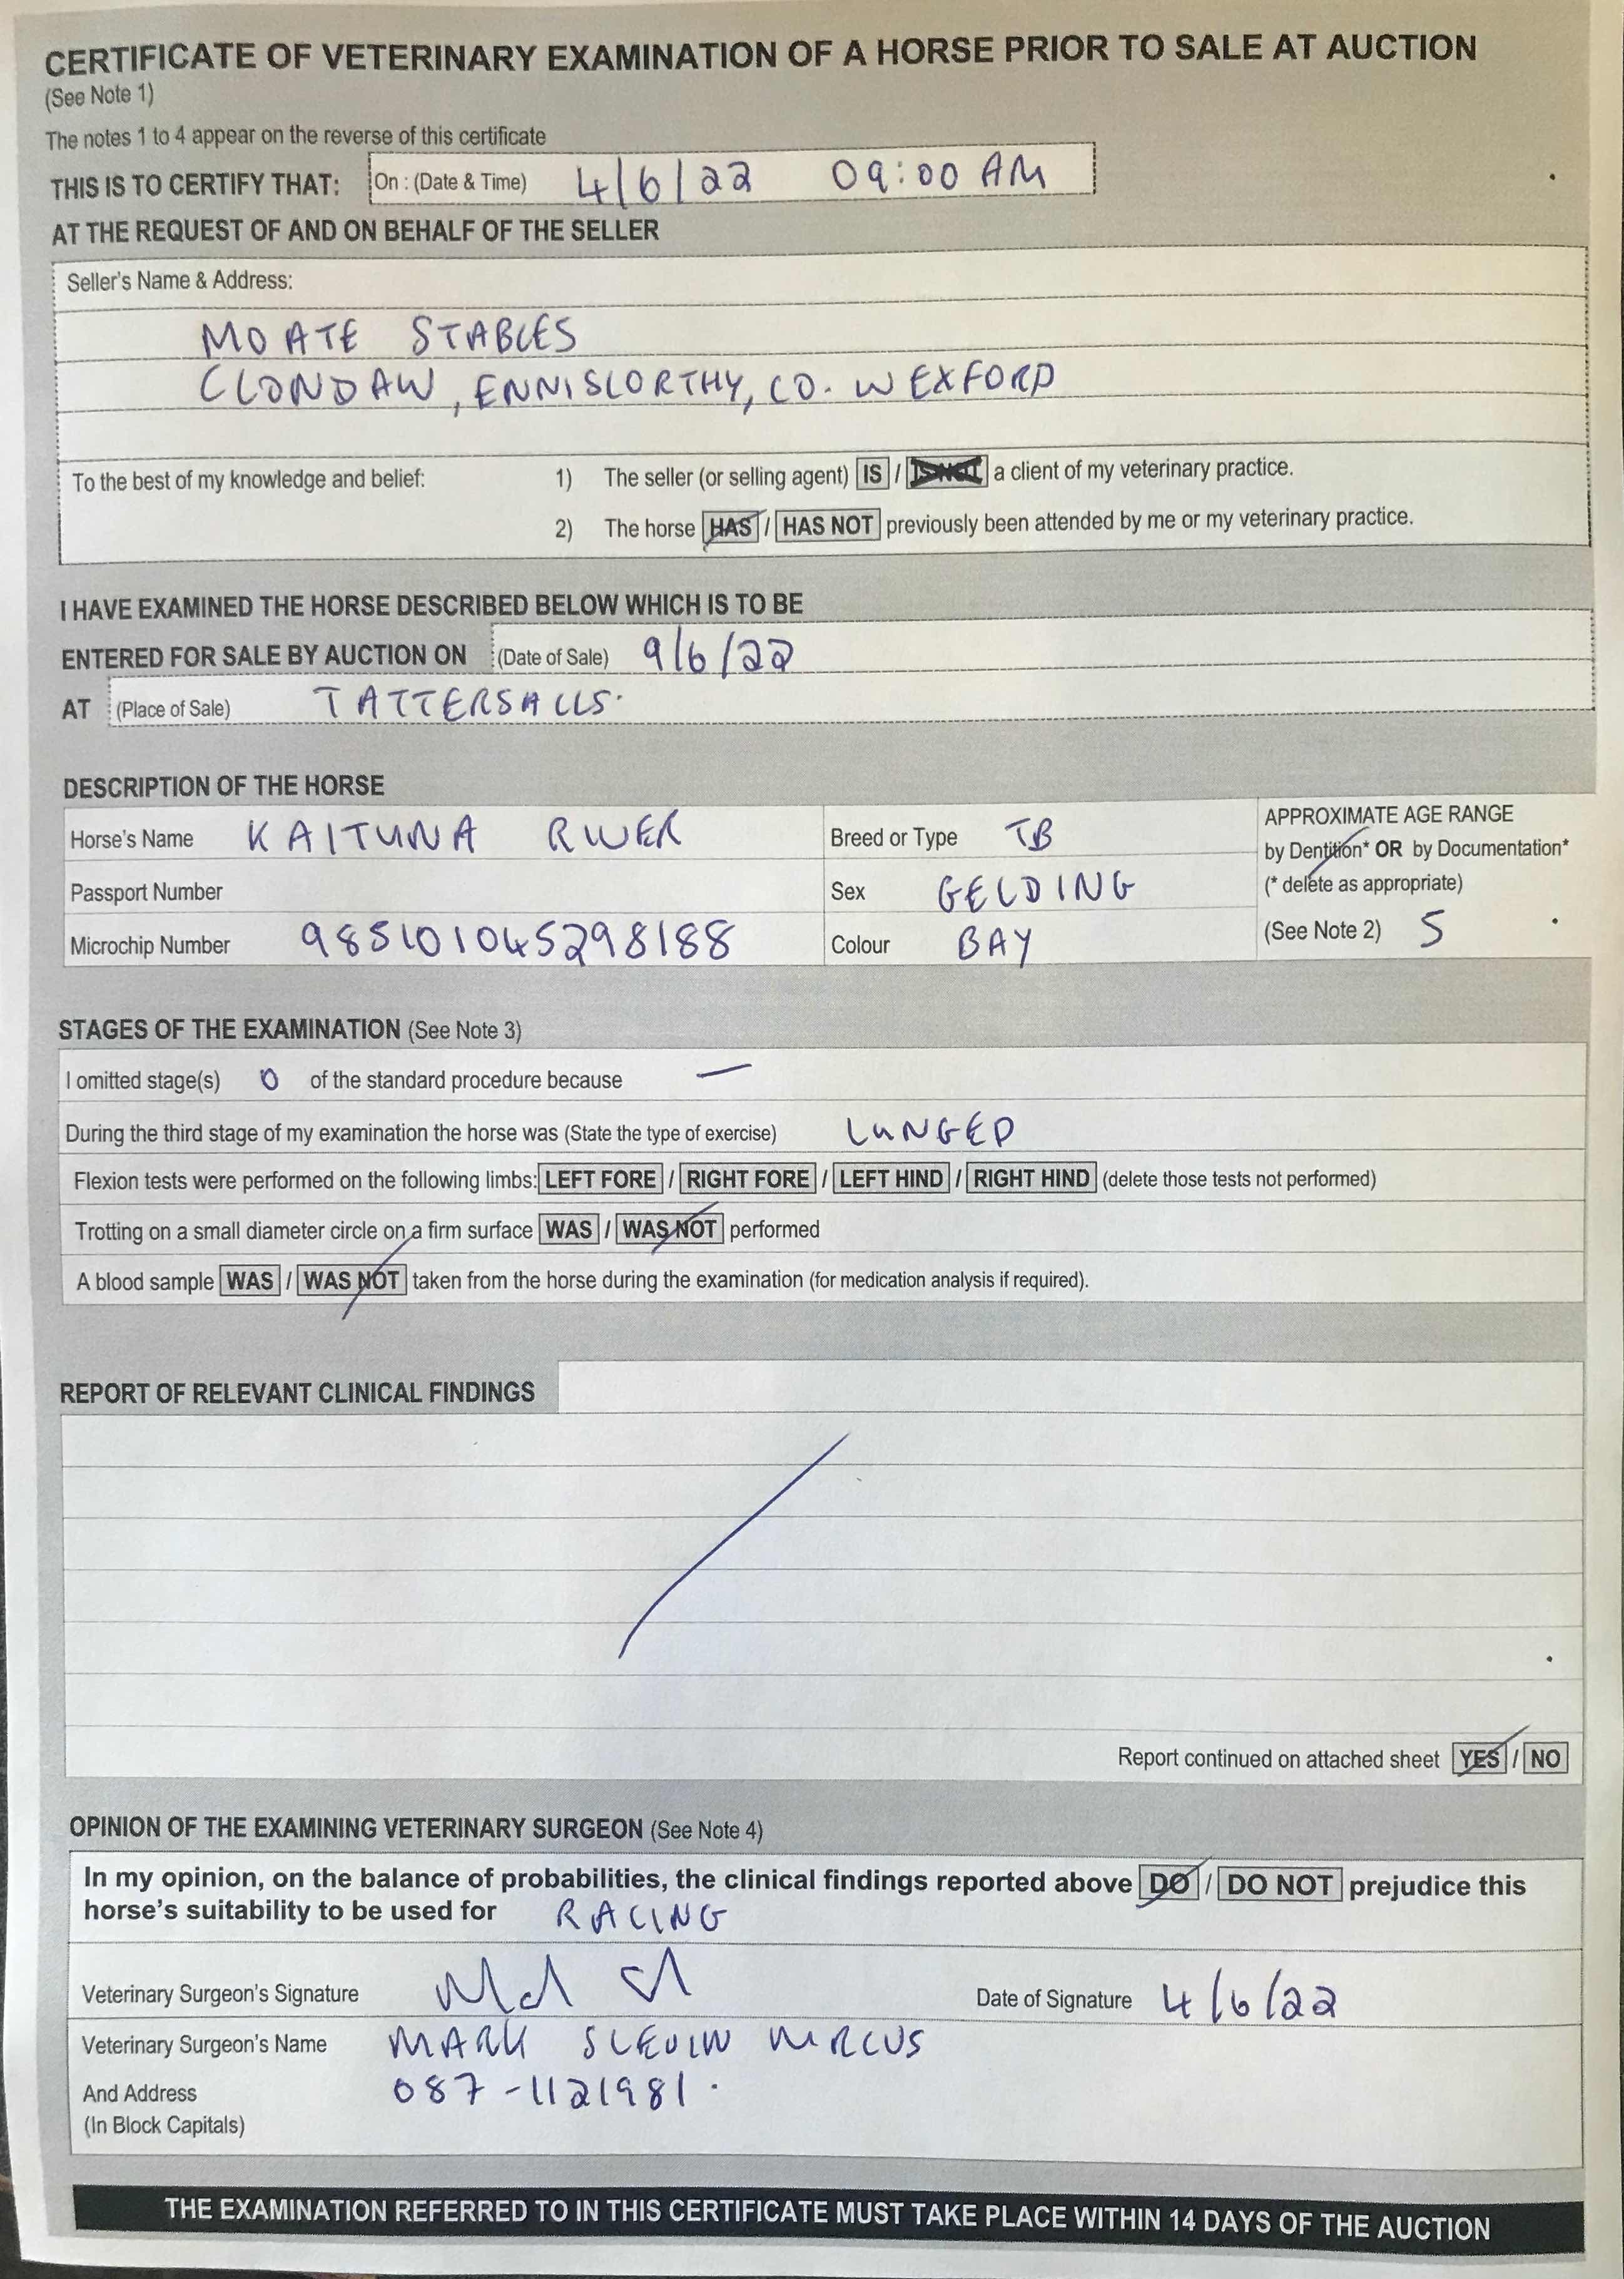 CERTIFICATE OF VETERINARY EXAMINATION OF A HORSE PRIOR TO SALE AT AUCTION
(See Note 1)
The notes 1 to 4 appear on the reverse of this certificate
THIS IS TO CERTIFY THAT: On : (Date & Time) 4/6/22 09:00 AM
AT THE REQUEST OF AND ON BEHALF OF THE SELLER
Seller's Name & Address:
MOATE STABLES
CLONDAW, ENNISCORTHY, CO. WEXFORD
To the best of my knowledge and belief: 1) The seller (or selling agent) IS / IS NOT a client of my veterinary practice.
2) The horse HAS / HAS NOT previously been attended by me or my veterinary practice.
I HAVE EXAMINED THE HORSE DESCRIBED BELOW WHICH IS TO BE
ENTERED FOR SALE BY AUCTION ON (Date of Sale) 9/6/22
AT (Place of Sale) TATTERSALLS.
DESCRIPTION OF THE HORSE
Horse's Name KAITUNA RIVER Breed or Type TB APPROXIMATE AGE RANGE
by Dentition* OR by Documentation*
Passport Number Sex GELDING (* delete as appropriate)
Microchip Number 985101045298188 Colour BAY (See Note 2) 5
STAGES OF THE EXAMINATION (See Note 3)
I omitted stage(s) 0 of the standard procedure because —
During the third stage of my examination the horse was (State the type of exercise) LUNGED
Flexion tests were performed on the following limbs: LEFT FORE / RIGHT FORE / LEFT HIND / RIGHT HIND (delete those tests not performed)
Trotting on a small diameter circle on a firm surface WAS / WAS NOT performed
A blood sample WAS / WAS NOT taken from the horse during the examination (for medication analysis if required).
REPORT OF RELEVANT CLINICAL FINDINGS
Report continued on attached sheet YES / NO
OPINION OF THE EXAMINING VETERINARY SURGEON (See Note 4)
In my opinion, on the balance of probabilities, the clinical findings reported above DO / DO NOT prejudice this
horse's suitability to be used for RACING
Veterinary Surgeon's Signature Date of Signature 4/6/22
Veterinary Surgeon's Name MARK SLEVIN MRCVS
And Address 087-1121981.
(In Block Capitals)
THE EXAMINATION REFERRED TO IN THIS CERTIFICATE MUST TAKE PLACE WITHIN 14 DAYS OF THE AUCTION